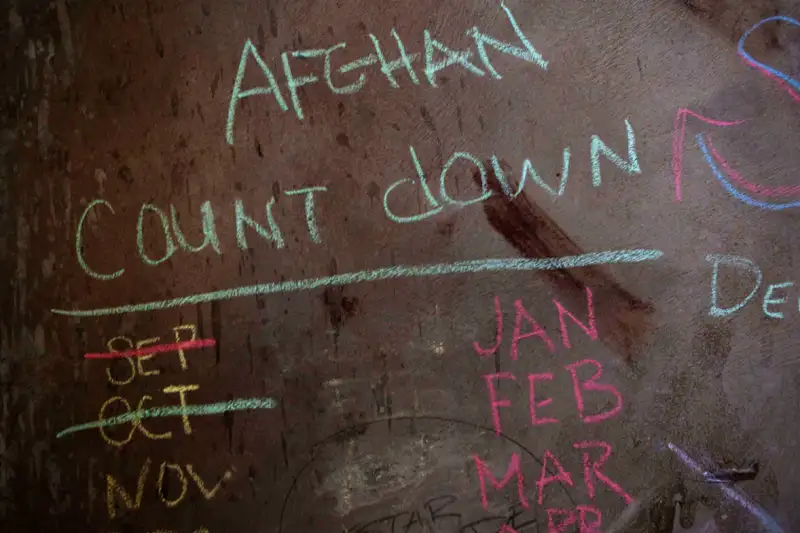 AFGHAN
COUNT DOWN
SEP
OCT
NOV
JAN
FEB
MAR
APR
DE
STAR